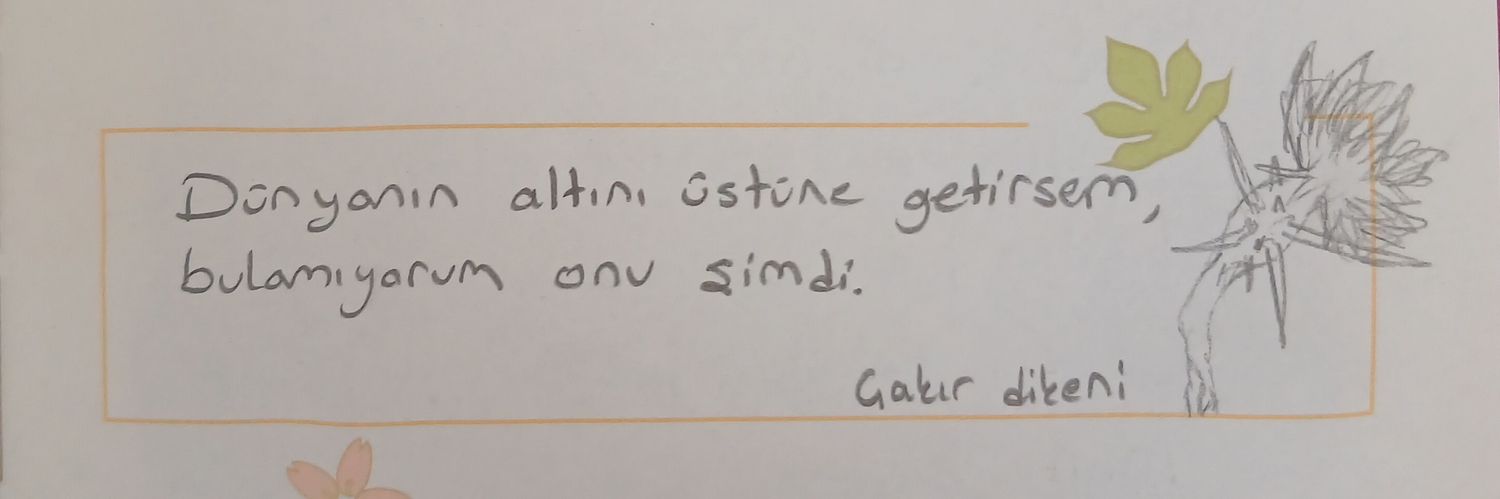 Dünyanın altını üstüne getirsem,
bulamıyorum onu şimdi.
Çakır dikeni